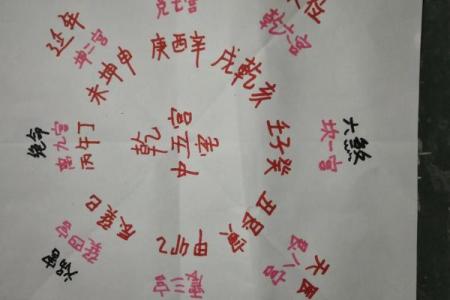 延年
坤二宫
未坤申
七宫
庚酉辛
位
乾六宫
戌乾亥
六煞
坎一宫
壬子癸
天医
艮八宫
丑艮寅
震三宫
甲卯乙
祸害
巽四宫
辰巽巳
绝命
离九宫
丙午丁
乾
中五宫